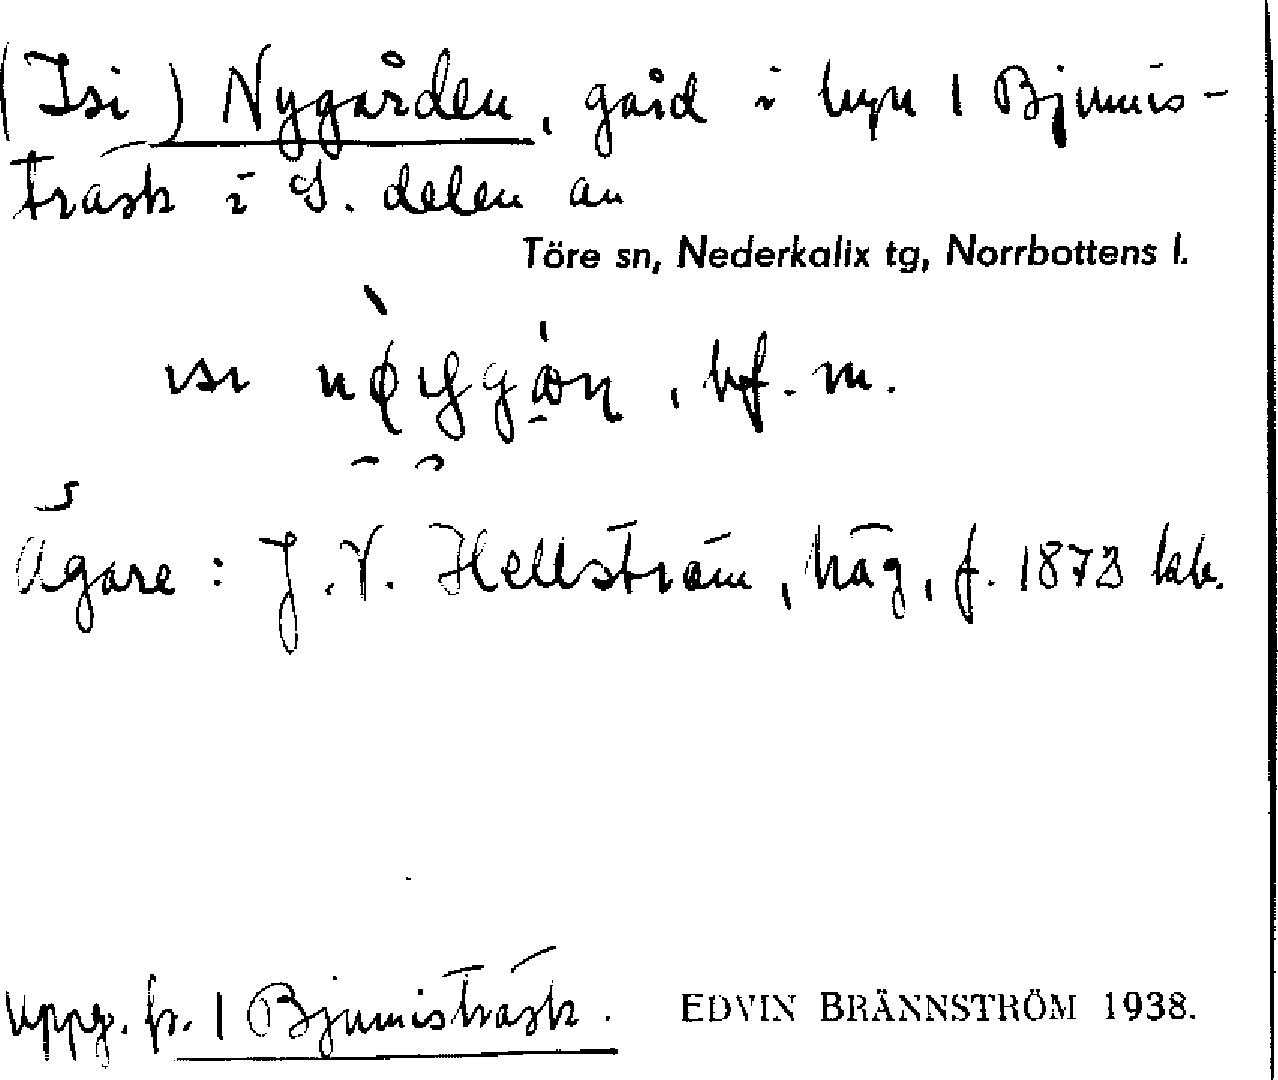 (Isi) Nygården, gård i byn 1 Bjumis-
träsk i S. delen av
Töre sn, Nederkalix tg, Norrbottens l.
ısı , bf. m.
Ägare: J. V. Hellström, häg, f. 1873 ibb.
Uppg. fr. 1 Bjumisträsk. EDVIN BRÄNNSTRÖM 1938.